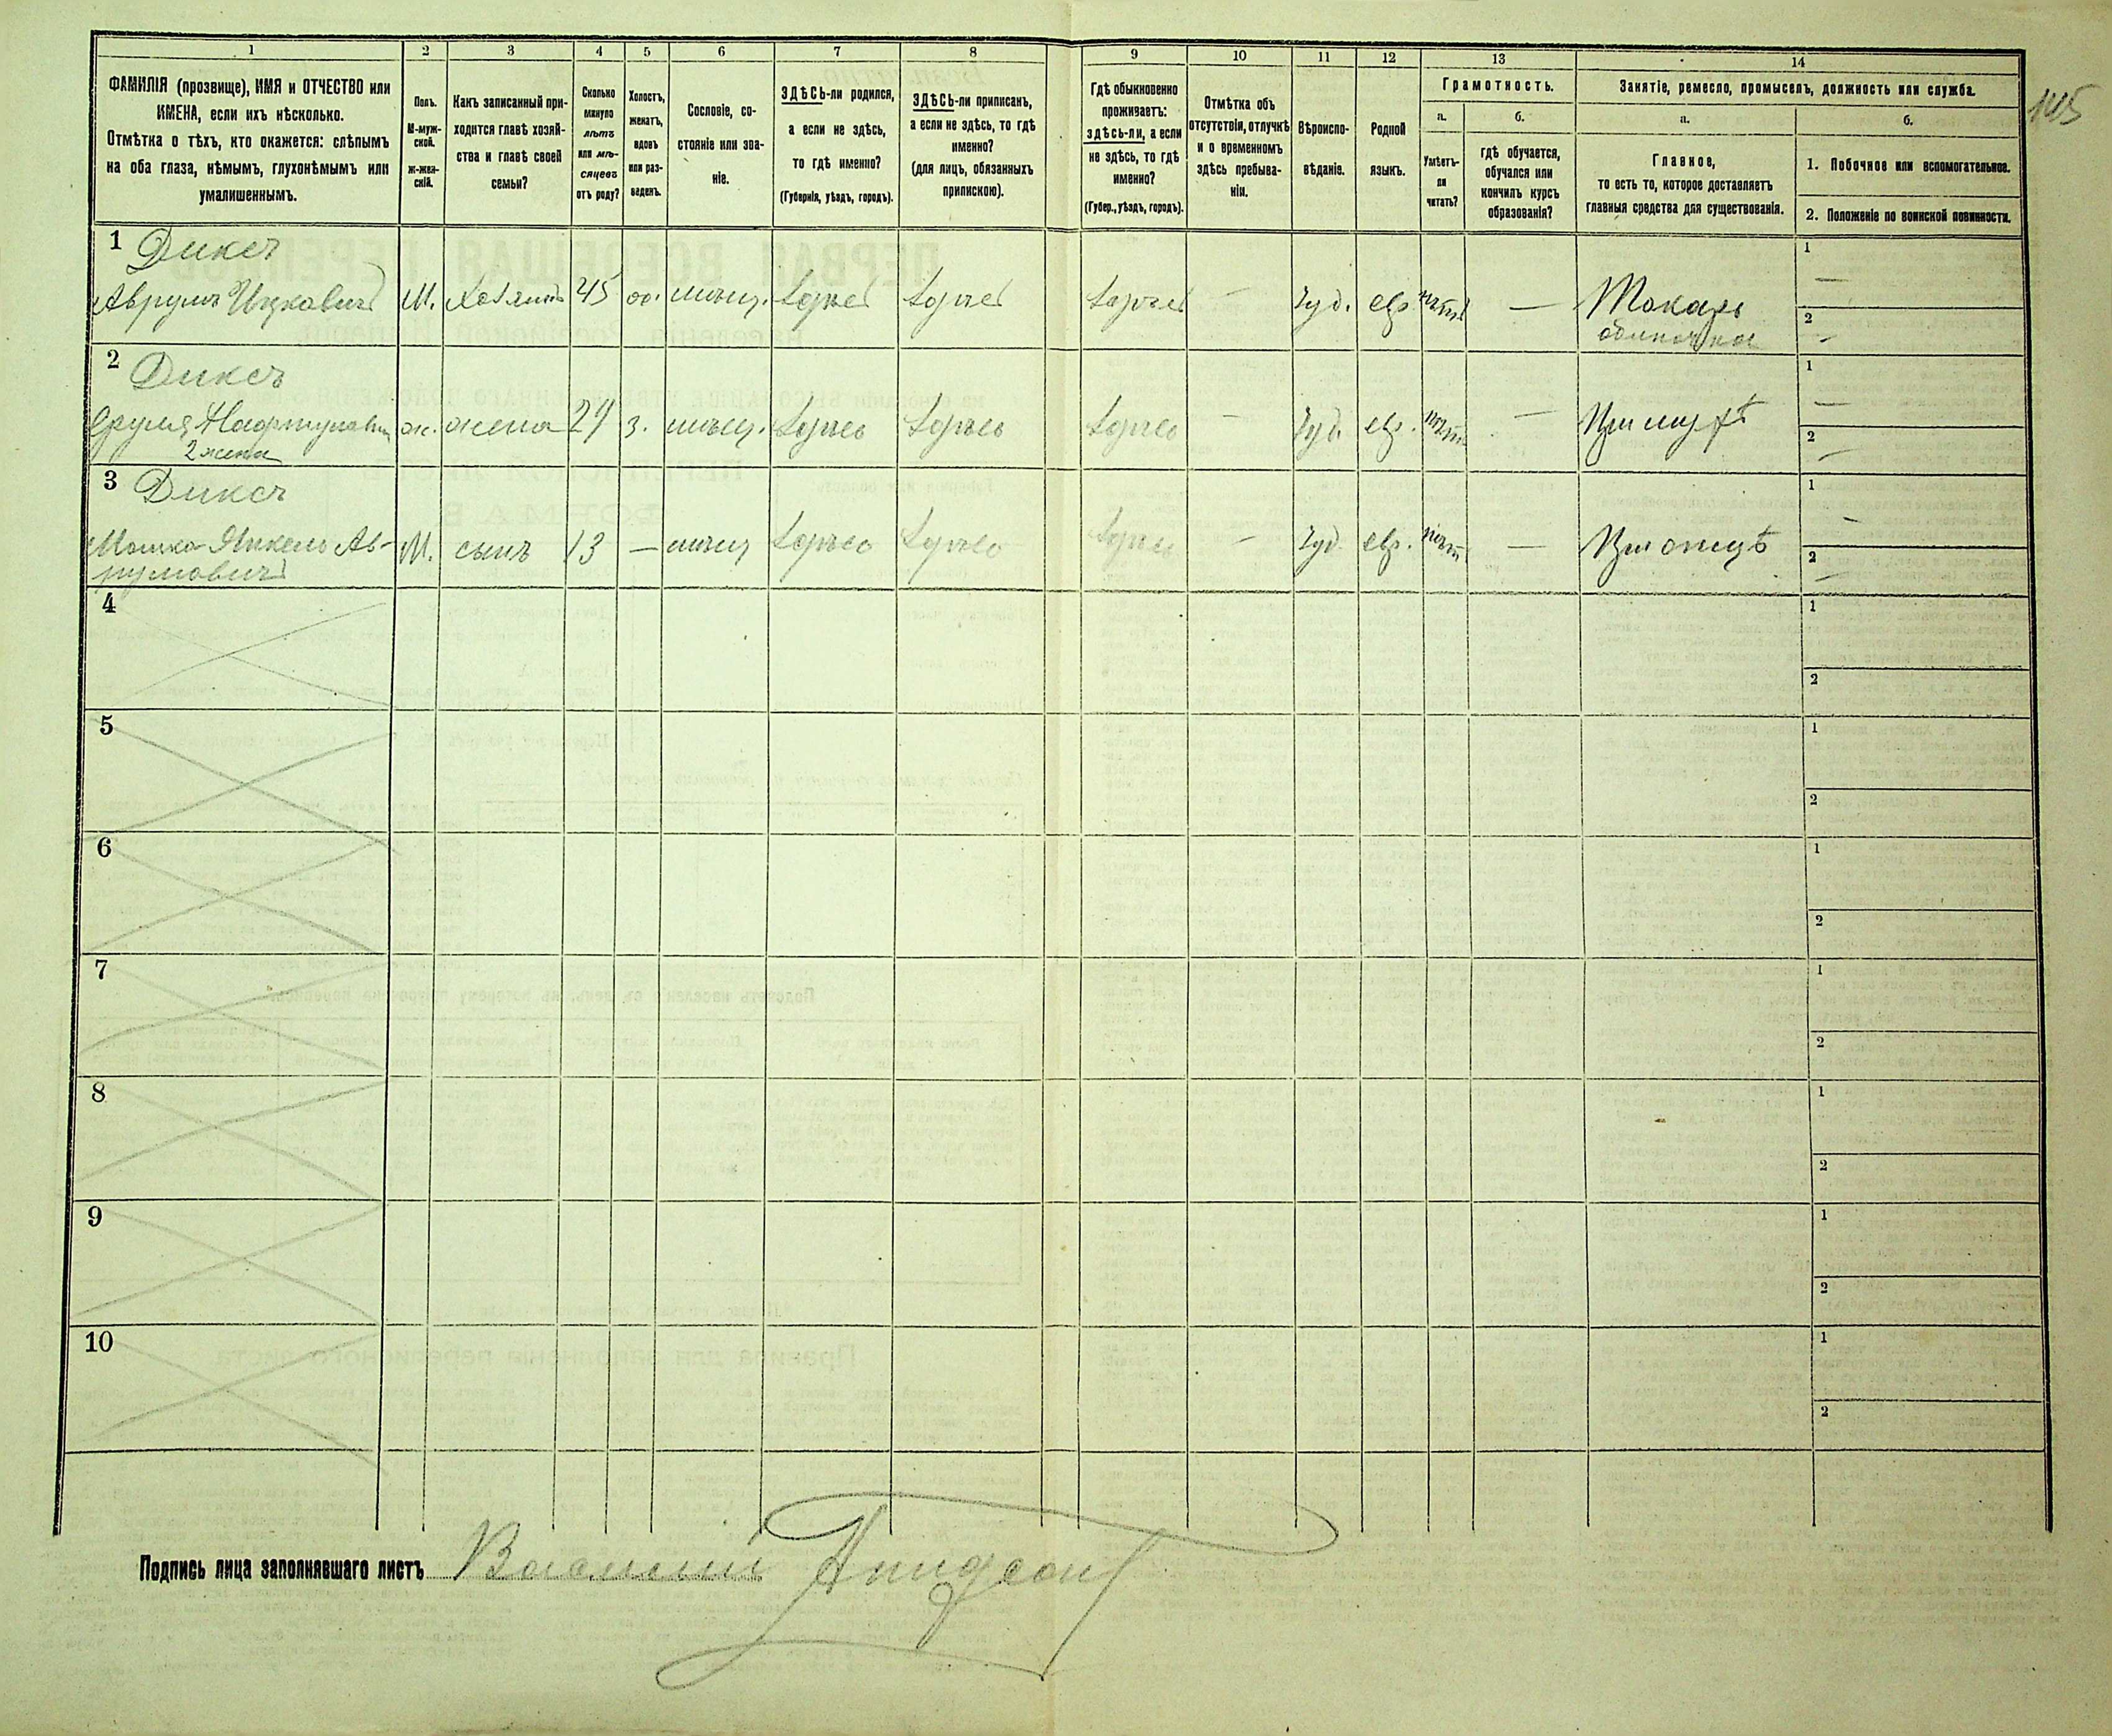 145
1 2 3 4 5 6 7 8 9 10 11 12 13 14
ФАМИЛІЯ (прозвище), ИМЯ и ОТЧЕСТВО или
ИМЕНА, если ихъ нѣсколько.
Отмѣтка о тѣхъ, кто окажется: слѣпымъ
на оба глаза, нѣмымъ, глухонѣмымъ или
умалишеннымъ.
Полъ.
М-муж-
ской.
ж-жен-
скій.
Какъ записанный при-
ходится главѣ хозяй-
ства и главѣ своей
семьи?
Сколько
минуло
лѣтъ
или мѣ-
сяцевъ
отъ роду?
Холостъ,
женатъ,
вдовъ
или раз-
веденъ.
Сословіе, со-
стояніе или зва-
ніе.
ЗДѢСЬ-ли родился,
а если не здѣсь,
то гдѣ именно?
(Губернія, уѣздъ, городъ).
ЗДѢСЬ-ли приписанъ,
а если не здѣсь, то гдѣ
именно?
(для лицъ, обязанныхъ
припискою).
Гдѣ обыкновенно
проживаетъ:
здѣсь-ли, а если
не здѣсь, то гдѣ
именно?
(Губер., уѣздъ, городъ).
Отмѣтка объ
отсутствіи, отлучкѣ
и о временномъ
здѣсь пребыва-
ніи.
Вѣроиспо-
вѣданіе.
Родной
языкъ.
Грамотность.
а.
Умѣетъ-
ли
читать?
б.
гдѣ обучается,
обучался или
кончилъ курсъ
образованія?
Занятіе, ремесло, промыселъ, должность или служба.
а.
Главное,
то есть то, которое доставляетъ
главныя средства для существованія.
б.
1. Побочное или вспомогательное.
2. Положеніе по воинской повинности.
1 Диксъ
Аврумъ Ицковичъ М. Хозяинъ 45 мѣщ. Іуд. евр. Токарь
1 —
2 —
2 Диксъ
ж. жена 29 з. мѣщ. — Іуд. евр. —
2 жена
1 —
2 —
3 Диксъ
Мошка-Янкель Ав- М. сынъ 13 — мѣщ — Іуд. евр. — При отцѣ
румовичъ
1 —
2 —
4
1
2
5
1
2
6
1
2
7
1
2
8
1
2
9
1
2
10
1
2
Подпись лица заполнявшаго листъ Василій